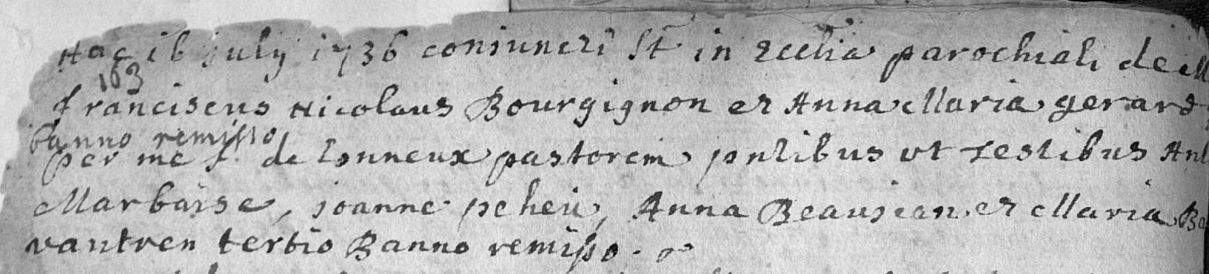 Hac 16 july 1736 coniuncti st in Ecclia parochiali de M
163
franciscus Nicolaus Bourgignon et Anna Maria gerard
banno remisso
per me f. de Lonneux pastorem pntibus ut testibus Ant
Marbaise, joanne peheu, Anna Beaujean et Maria Ba
vantren tertio Banno remisso.